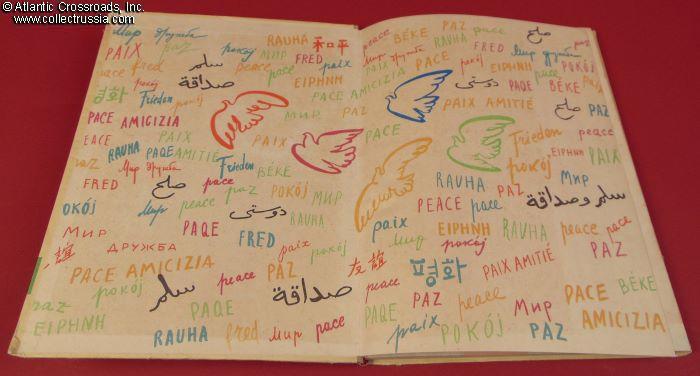 © Atlantic Crossroads, Inc.
www.collectrussia.com
Мир дружба
paz
RAUHA
和平
PAIX
pokój
МИР
FRED
pace
fred
سلم
peace
pace
paix
평화
pokój
Frieden
pokój
صداقة
EIPHNH
PACE AMICIZIA
МИР
PACE AMICIZIA
EACE
PAIX
PAIX
RAUHA
PAQE
AMITIÉ
paz
Мир дружба
Frieden
BÉKE
FRED
صلح
pace
paz
POKÓJ
МИР
OKÓJ
Мир
peace
دوستی
RAUHA
Мир
PAQE
FRED
ДРУЖБА
paix
pokój
誼
PACE AMICIZIA
peace
PAZ
pokój
سلم
صداقة
paz
PAQE
EIPHNH
RAUHA
fred
мир
pace
peace
BÉKE
PAZ
صلح
paix
Мир дружба
RAUHA
FRED
Мир дружба
PAIX
AMICIZIA
PACE
peace
POKÓJ
pace
دوستی
PAQE
BÉKE
PAIX AMITIÉ
صلح
PAZ
PACE
Frieden
peace
pokój
EIPHNH
PAIX
RAUHA
PAZ
Мир
PEACE
pace
سلم وصداقة
paix
EIPHNH
RAUHA
peace
pace
мир
pokój
PAZ
友誼
평화
PAIX AMITIÉ
peace
PAZ
peace
Мир
PACE
BÉKE
PAIX
paix
POKÓJ
PAZ
AMICIZIA